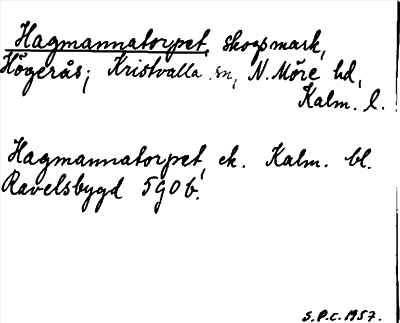 Hagmannatorpet, skogsmark,
Högerås; Kristvalla sn, N. Möre hd,
Kalm. l.
Hagmannatorpet, ek. Kalm. bl.
Ravelsbygd 590b.
S.P.C. 1957.